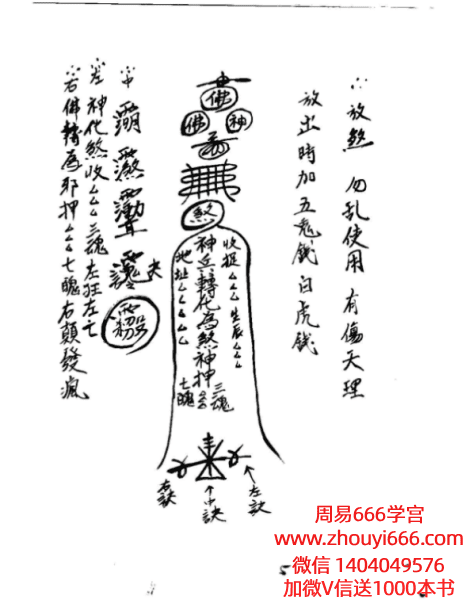 ∴放煞 勿乱使用 有傷天理
放出時加五鬼錢 白虎錢
佛
佛 神
煞
收捉△△△生辰△△△
神迅轉化為煞神押△△三魂七魄
地址△△△△
左訣
中訣
右訣
∴中
∴左 神化煞收△△△三魂左狂左亡
∴右 佛轉為邪押△△△七魄右顛發瘋
周易666学宫
www.zhouyi666.com
微信 1404049576
加微V信送1000本书